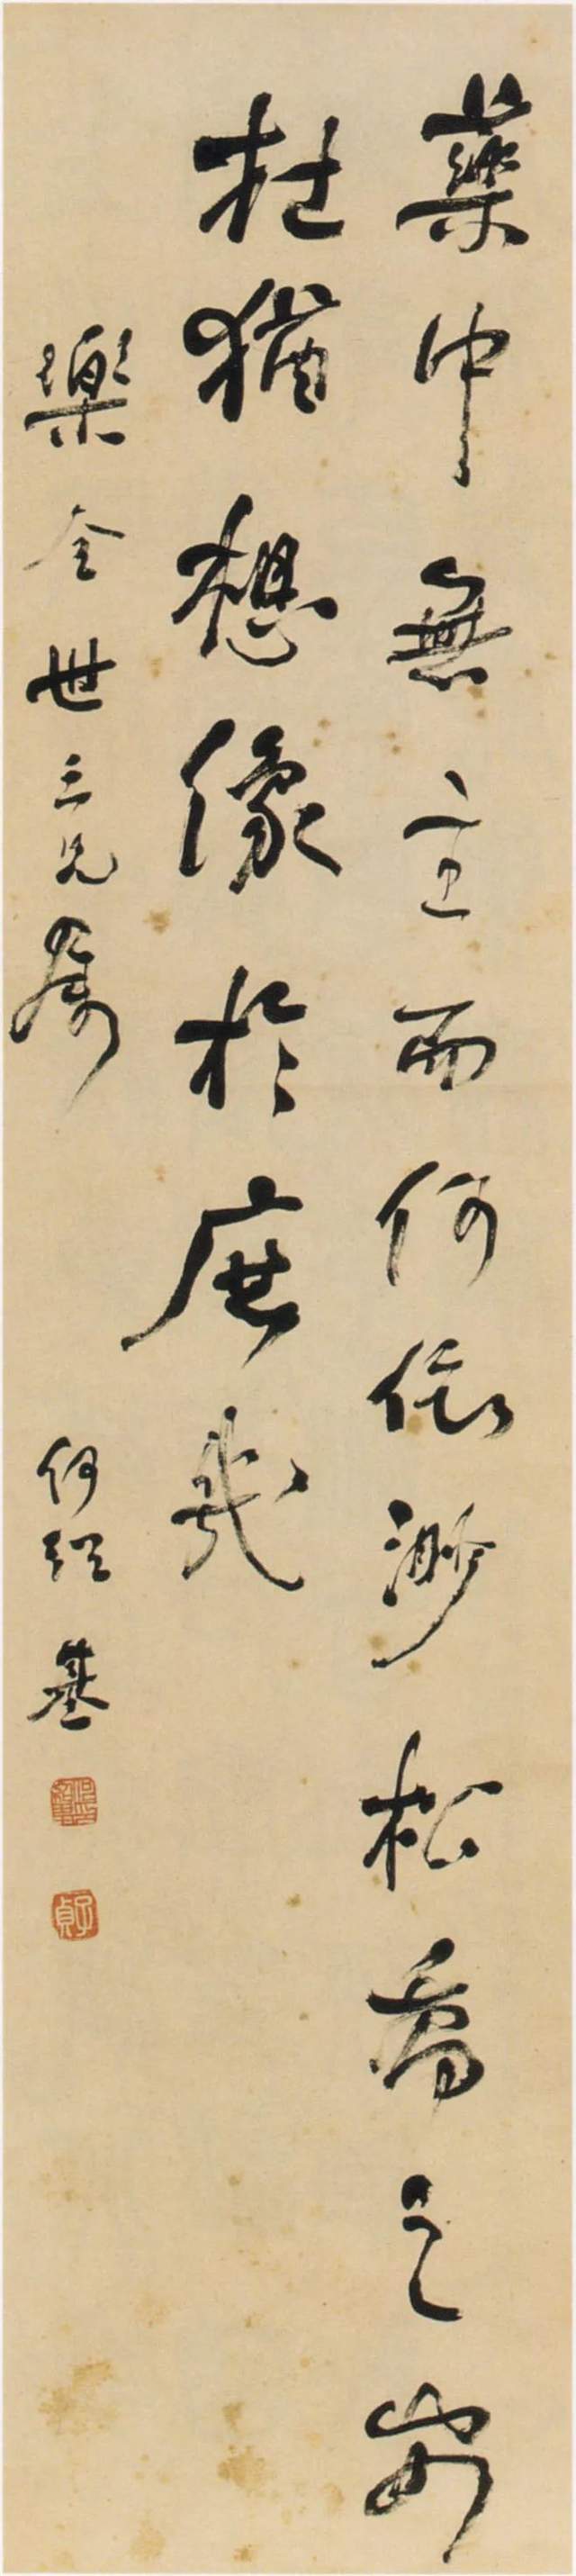 藥中無主而何依渺松喬之安
在猶想像於庶幾
樂全世三兄屬
何紹基
子貞